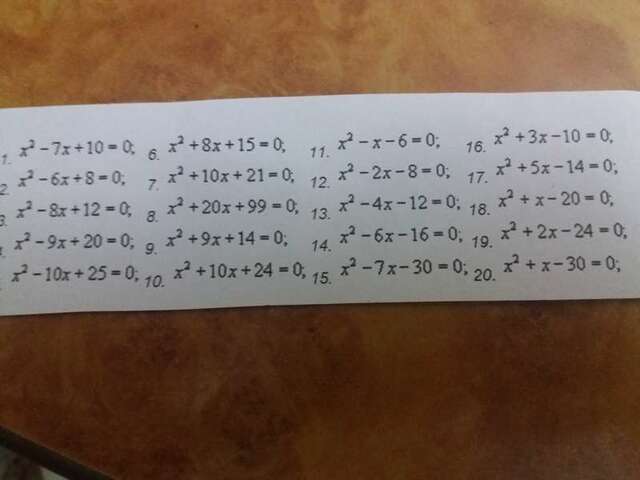 1. x² – 7x + 10 = 0; 6. x² + 8x + 15 = 0; 11. x² – x – 6 = 0; 16. x² + 3x – 10 = 0;
2. x² – 6x + 8 = 0; 7. x² + 10x + 21 = 0; 12. x² – 2x – 8 = 0; 17. x² + 5x – 14 = 0;
3. x² – 8x + 12 = 0; 8. x² + 20x + 99 = 0; 13. x² – 4x – 12 = 0; 18. x² + x – 20 = 0;
x² – 9x + 20 = 0; 9. x² + 9x + 14 = 0; 14. x² – 6x – 16 = 0; 19. x² + 2x – 24 = 0;
x² – 10x + 25 = 0; 10. x² + 10x + 24 = 0; 15. x² – 7x – 30 = 0; 20. x² + x – 30 = 0;